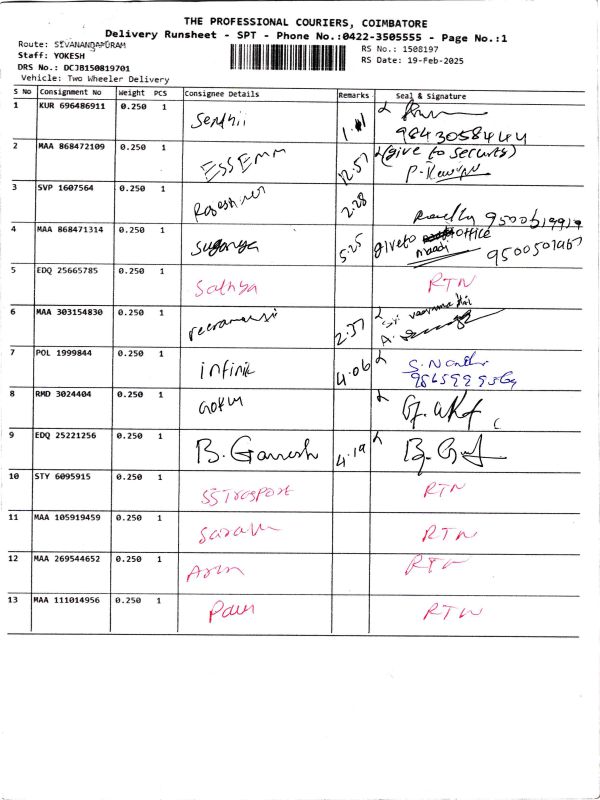 THE PROFESSIONAL COURIERS, COIMBATORE
Delivery Runsheet - SPT - Phone No.:0422-3505555 - Page No.:1
Route: SIVANANDAPURAM
RS No.: 1508197
Staff: YOKESH
RS Date: 19-Feb-2025
DRS No.: DCJB150819701
Vehicle: Two Wheeler Delivery
S No Consignment No Weight PCS Consignee Details Remarks Seal & Signature
1 KUR 696486911 0.250 1 Senthil
9843058444
2 MAA 868472109 0.250 1 ESSEmm 12.57 (give to security)
3 SVP 1607564 0.250 1 2.28
4 MAA 868471314 0.250 1 suganya 5.25 give to OFFICE
9500501967
5 EDQ 25665785 0.250 1 Sathya RTN
6 MAA 303154830 0.250 1 2.37
7 POL 1999844 0.250 1 infinik 4.06
8 RMD 3024404 0.250 1 Gokul
9 EDQ 25221256 0.250 1 B. Ganesh 4.19
10 STY 6095915 0.250 1 RTN
11 MAA 105919459 0.250 1 RTN
12 MAA 269544652 0.250 1 Arun RTN
13 MAA 111014956 0.250 1 Paul RTN